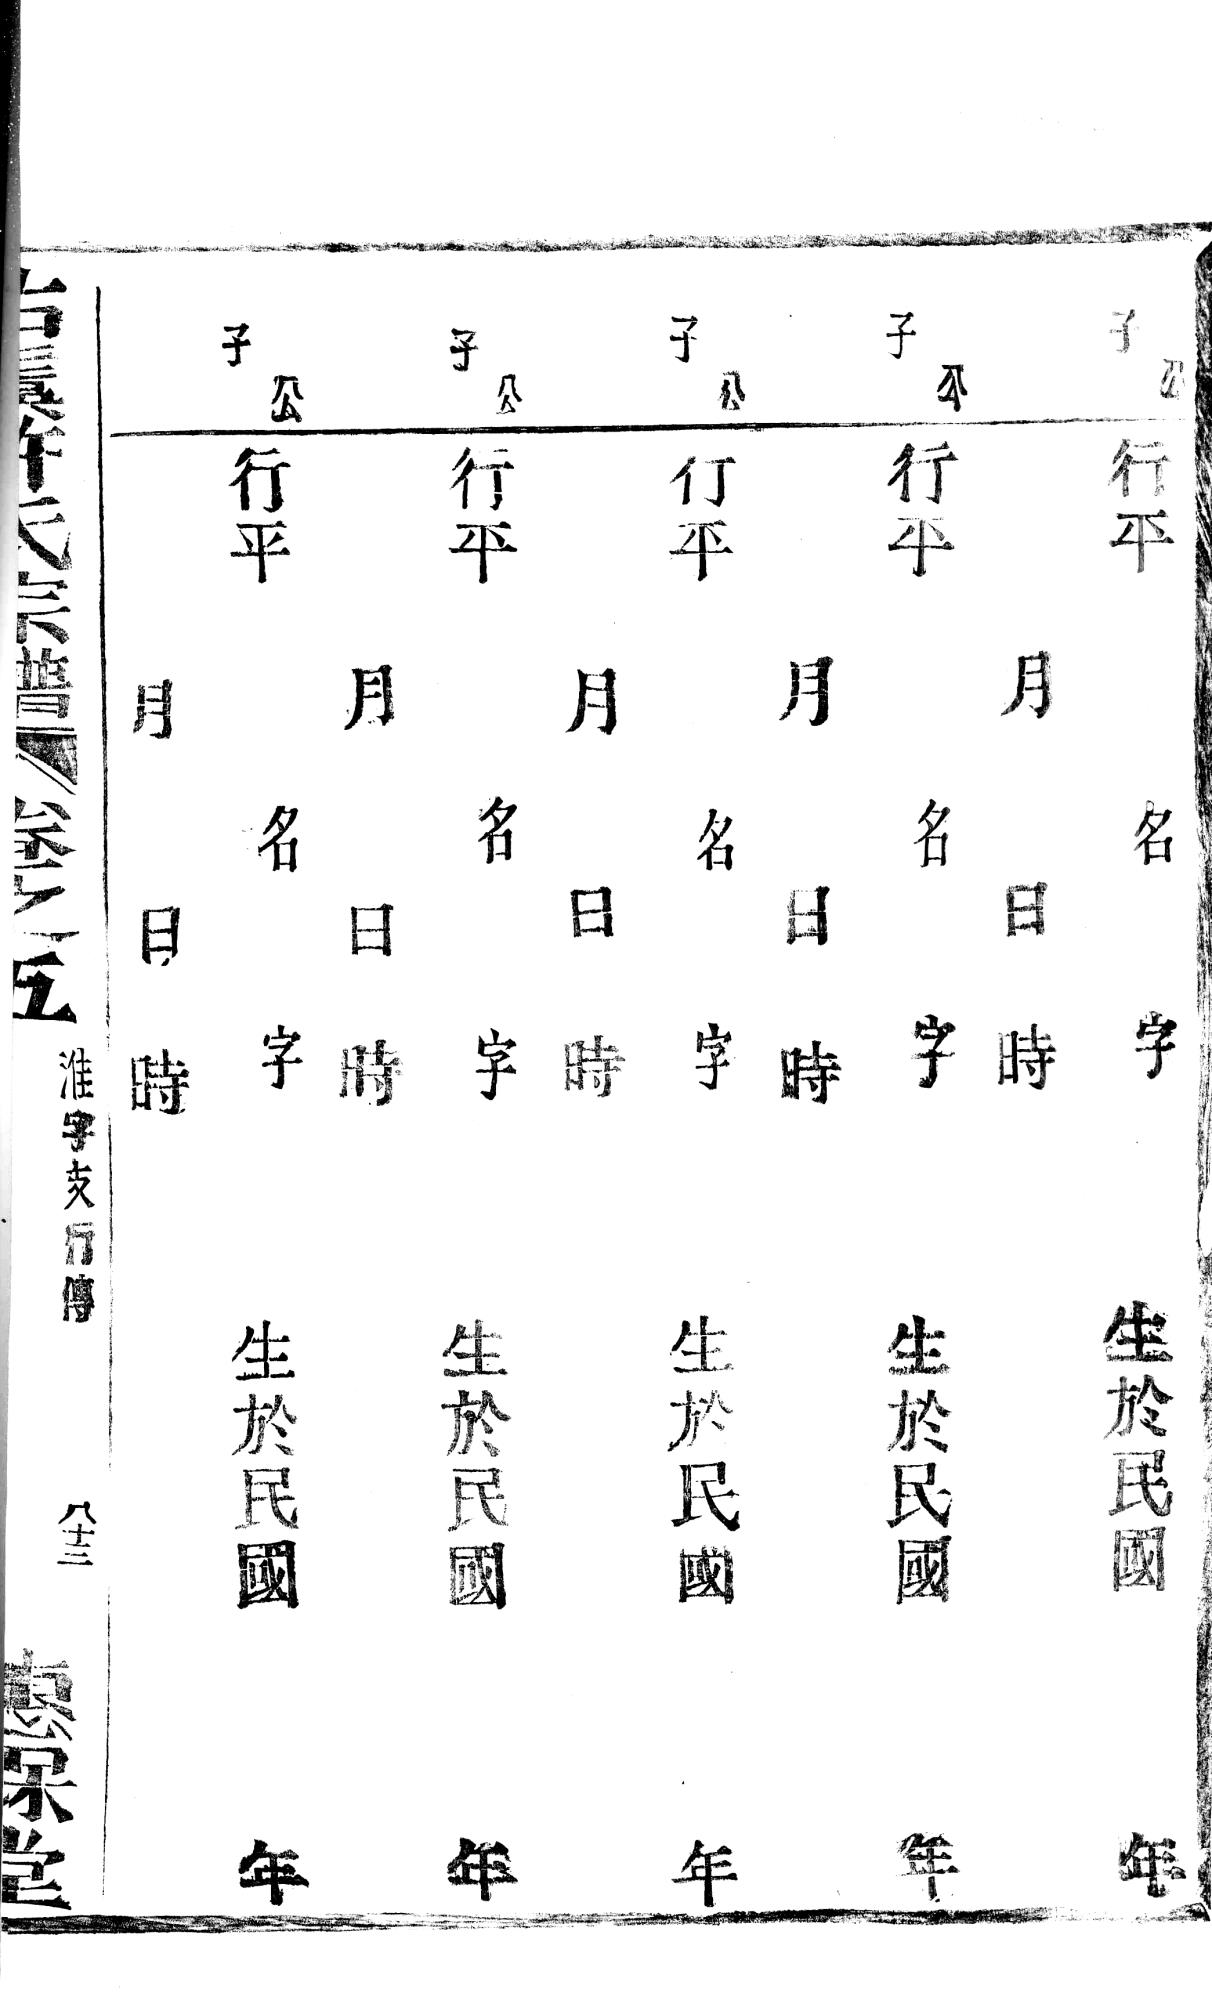 公
子
行平 名 字 生於民國 年
月 日 時
公
子
行平 名 字 生於民國 年
月 日 時
公
子
行平 名 字 生於民國 年
月 日 時
公
子
行平 名 字 生於民國 年
月 日 時
公
子
行平 名 字 生於民國 年
月 日 時
氏宗譜 卷之五
淮字支行傳
八十三
堂